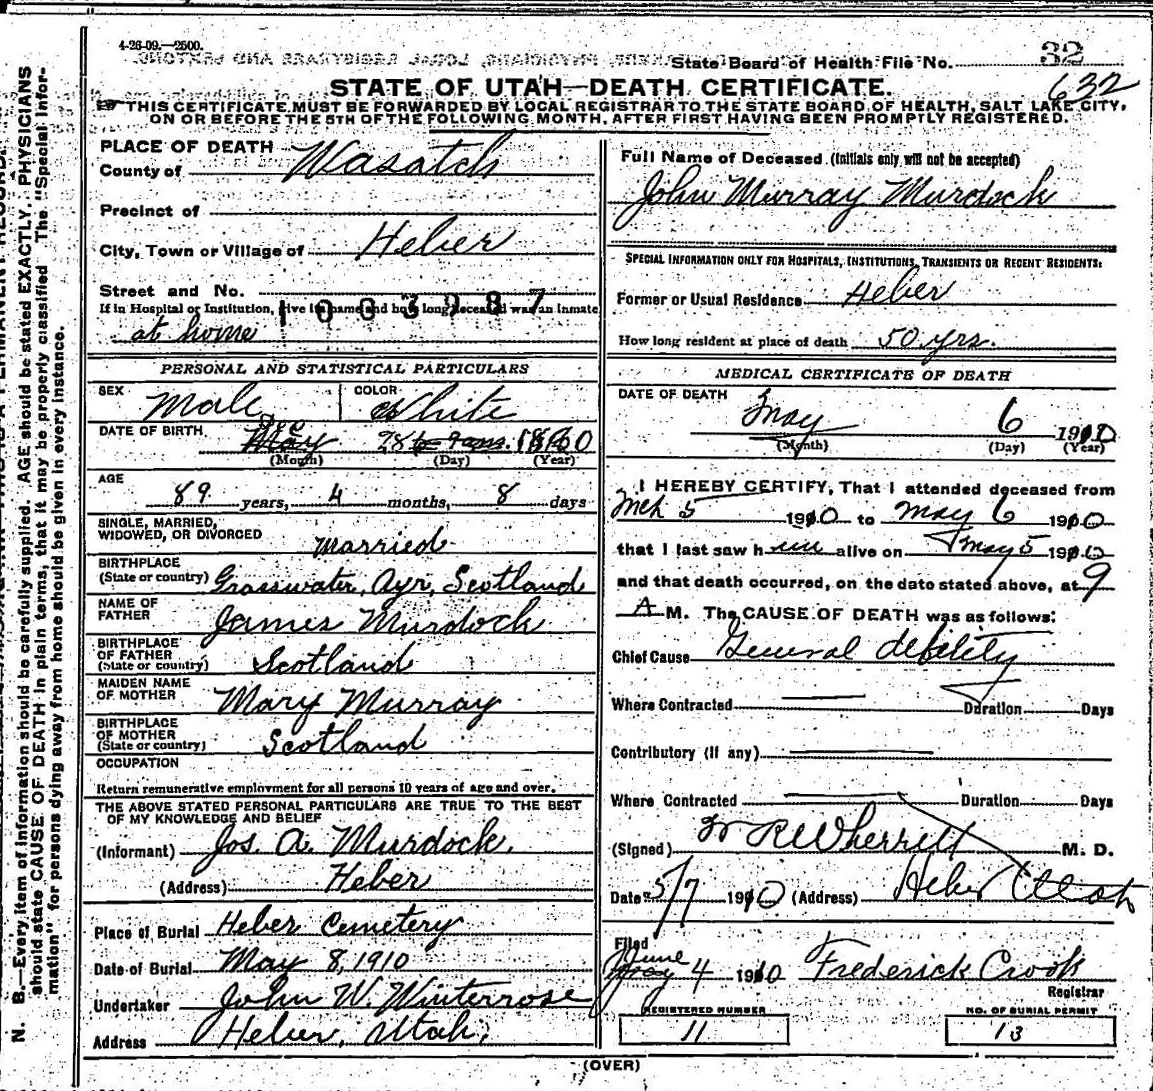 4-26-09.—2500.
State Board of Health File No. 32
632
STATE OF UTAH—DEATH CERTIFICATE.
THIS CERTIFICATE MUST BE FORWARDED BY LOCAL REGISTRAR TO THE STATE BOARD OF HEALTH, SALT LAKE CITY,
ON OR BEFORE THE 5TH OF THE FOLLOWING MONTH, AFTER FIRST HAVING BEEN PROMPTLY REGISTERED.
PLACE OF DEATH
County of Wasatch
Precinct of
City, Town or Village of Heber
Street and No.
1003987
If in Hospital or Institution, give its name and how long deceased was an inmate
at home
PERSONAL AND STATISTICAL PARTICULARS
SEX Male COLOR White
DATE OF BIRTH Dec
May 28 1820
(Month) (Day) (Year)
AGE
89 years, 4 months, 8 days
SINGLE, MARRIED,
WIDOWED, OR DIVORCED Married
BIRTHPLACE
(State or country) Grasswater, Ayr, Scotland
NAME OF
FATHER James Murdock
BIRTHPLACE
OF FATHER
(State or country) Scotland
MAIDEN NAME
OF MOTHER Mary Murray
BIRTHPLACE
OF MOTHER
(State or country) Scotland
OCCUPATION
Return remunerative employment for all persons 10 years of age and over.
THE ABOVE STATED PERSONAL PARTICULARS ARE TRUE TO THE BEST
OF MY KNOWLEDGE AND BELIEF
(Informant) Jos. A. Murdock.
(Address) Heber
Place of Burial Heber Cemetery
Date of Burial May 8, 1910
Undertaker John W. Winterrose
Address Heber, Utah.
Full Name of Deceased (Initials only will not be accepted)
John Murray Murdock
SPECIAL INFORMATION ONLY FOR HOSPITALS, INSTITUTIONS, TRANSIENTS OR RECENT RESIDENTS:
Former or Usual Residence Heber
How long resident at place of death 50 yrs.
MEDICAL CERTIFICATE OF DEATH
DATE OF DEATH
May 6 1910
(Month) (Day) (Year)
I HEREBY CERTIFY, That I attended deceased from
Mch 5 1910 to May 6 1910
that I last saw him alive on May 5 1910
and that death occurred, on the date stated above, at 9
A M. The CAUSE OF DEATH was as follows:
Chief Cause General debility
Where Contracted Duration Days
Contributory (if any)
Where Contracted Duration Days
(Signed) W R Wherritt M. D.
Date 5/7 1910 (Address) Heber Utah
Filed
June
May 4 1910 Frederick Crook
Registrar
REGISTERED NUMBER
11
NO. OF BURIAL PERMIT
13
(OVER)
N. B.—Every item of information should be carefully supplied. AGE should be stated EXACTLY. PHYSICIANS
should state CAUSE OF DEATH in plain terms, that it may be properly classified. The "Special Infor-
mation" for persons dying away from home should be given in every instance.